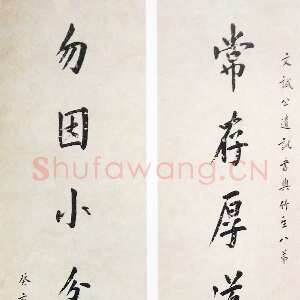 文誠公遺訓書與竹八弟
常存厚道
勿因小
癸
Shufawang.CN